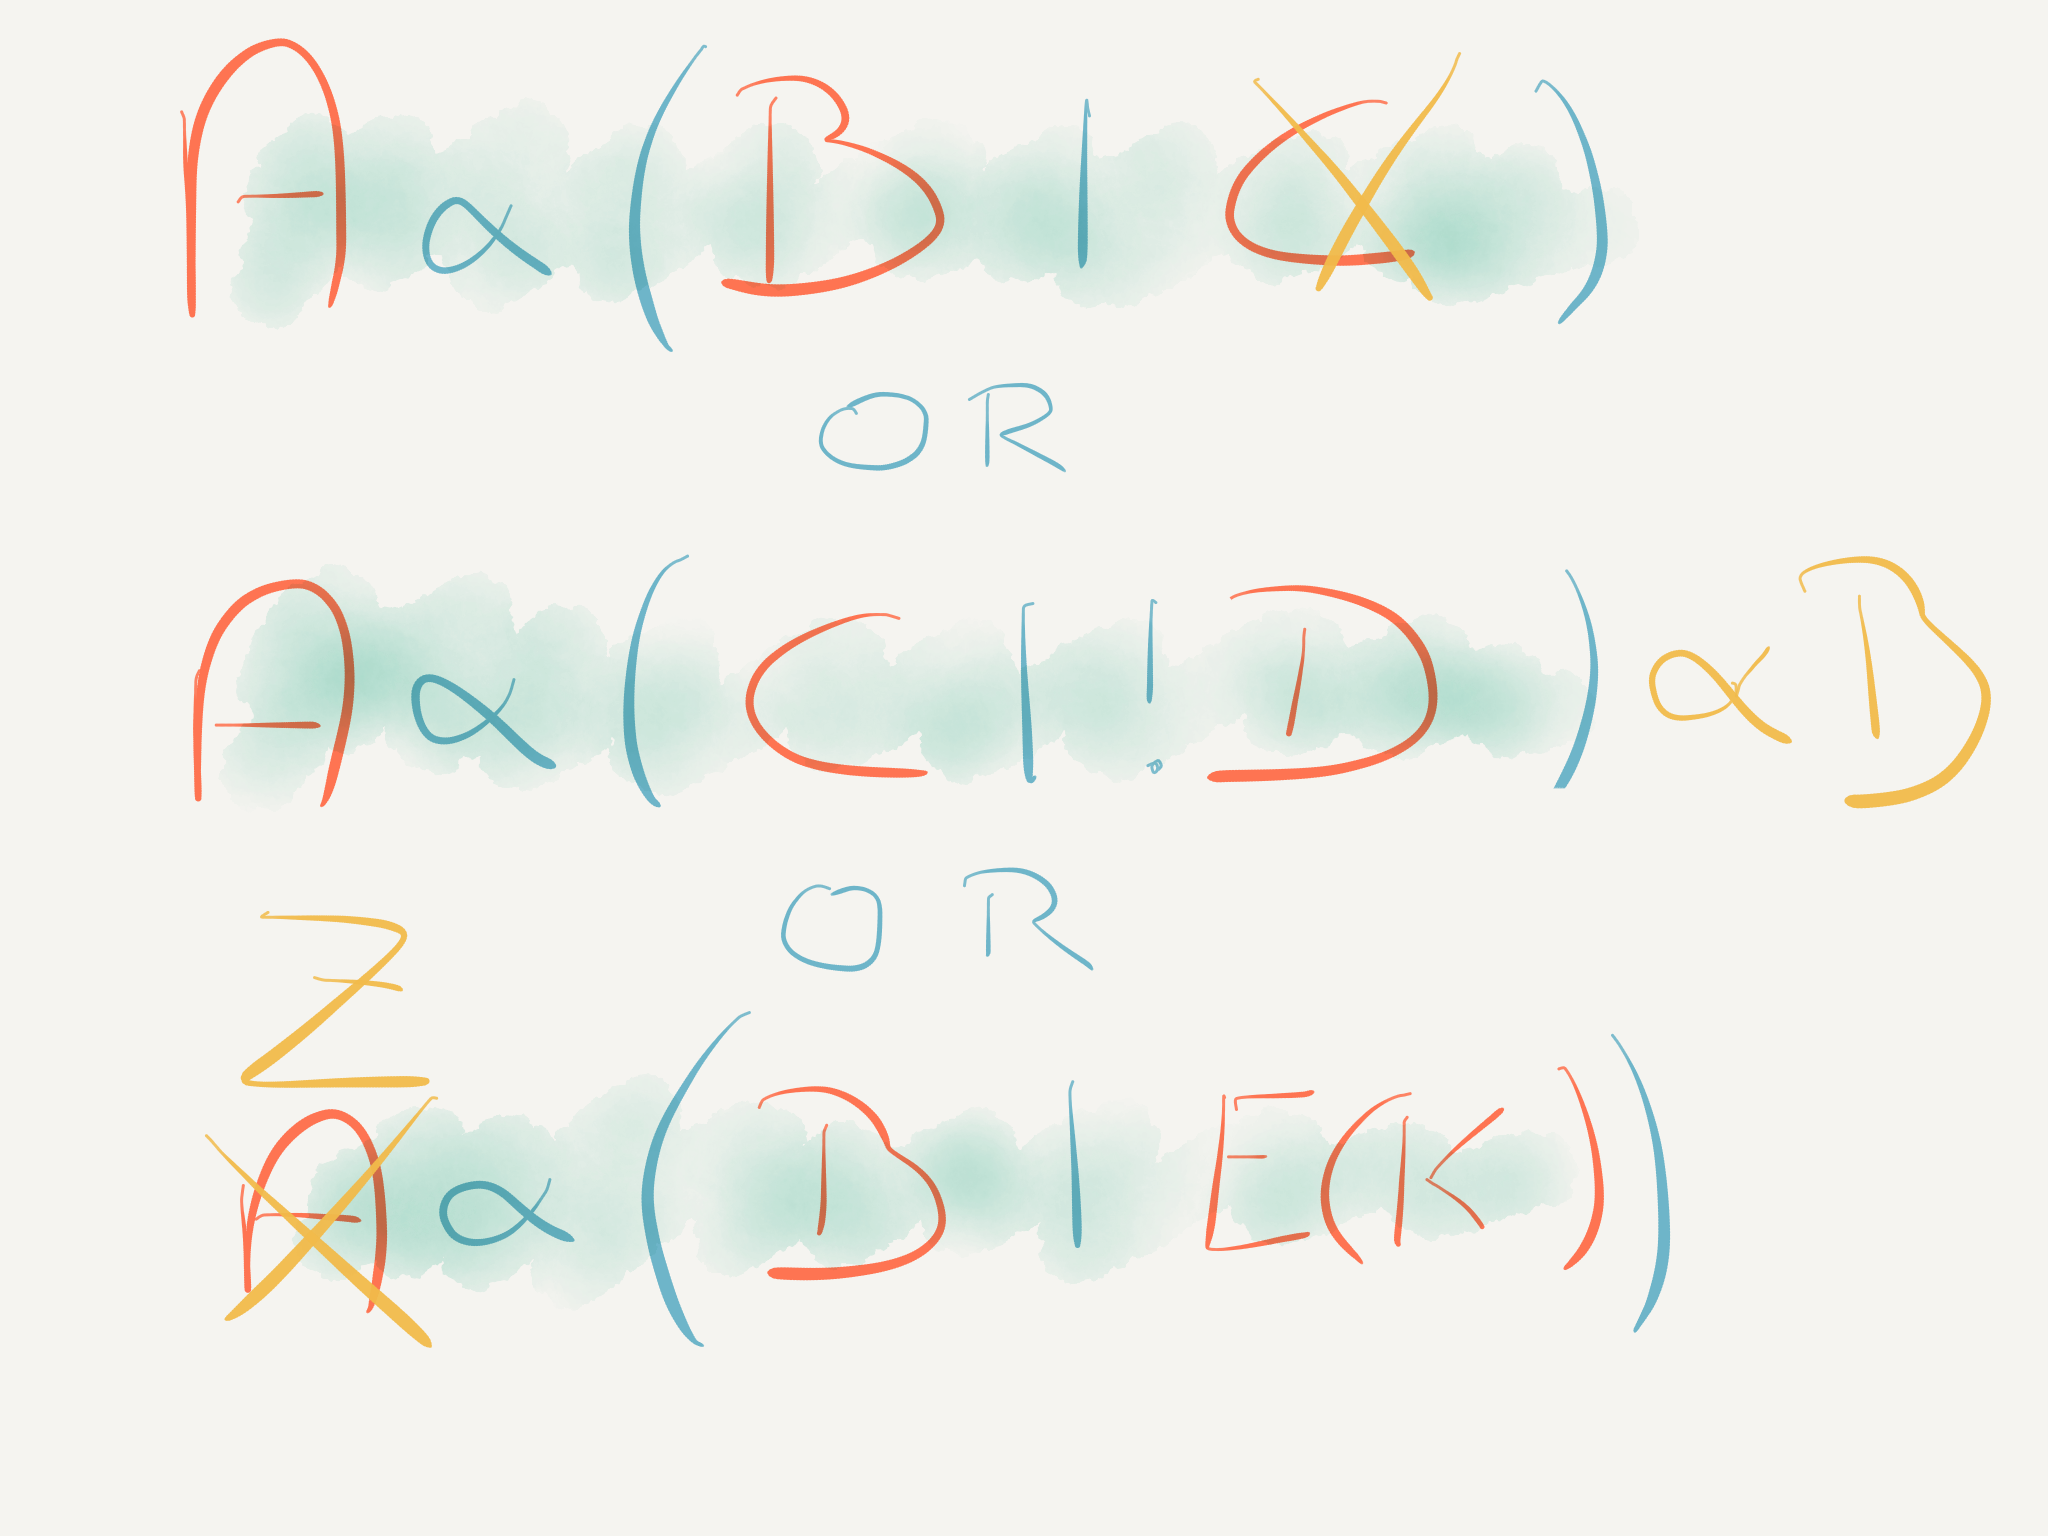 A α (B | C)
OR
A α (C | ! D) α B
OR
Z
A α (B | E(K))